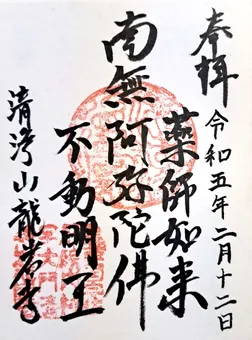 奉拝
令和五年二月十二日
薬師如来
南無阿弥陀佛
不動明王
清浄山龍岩寺